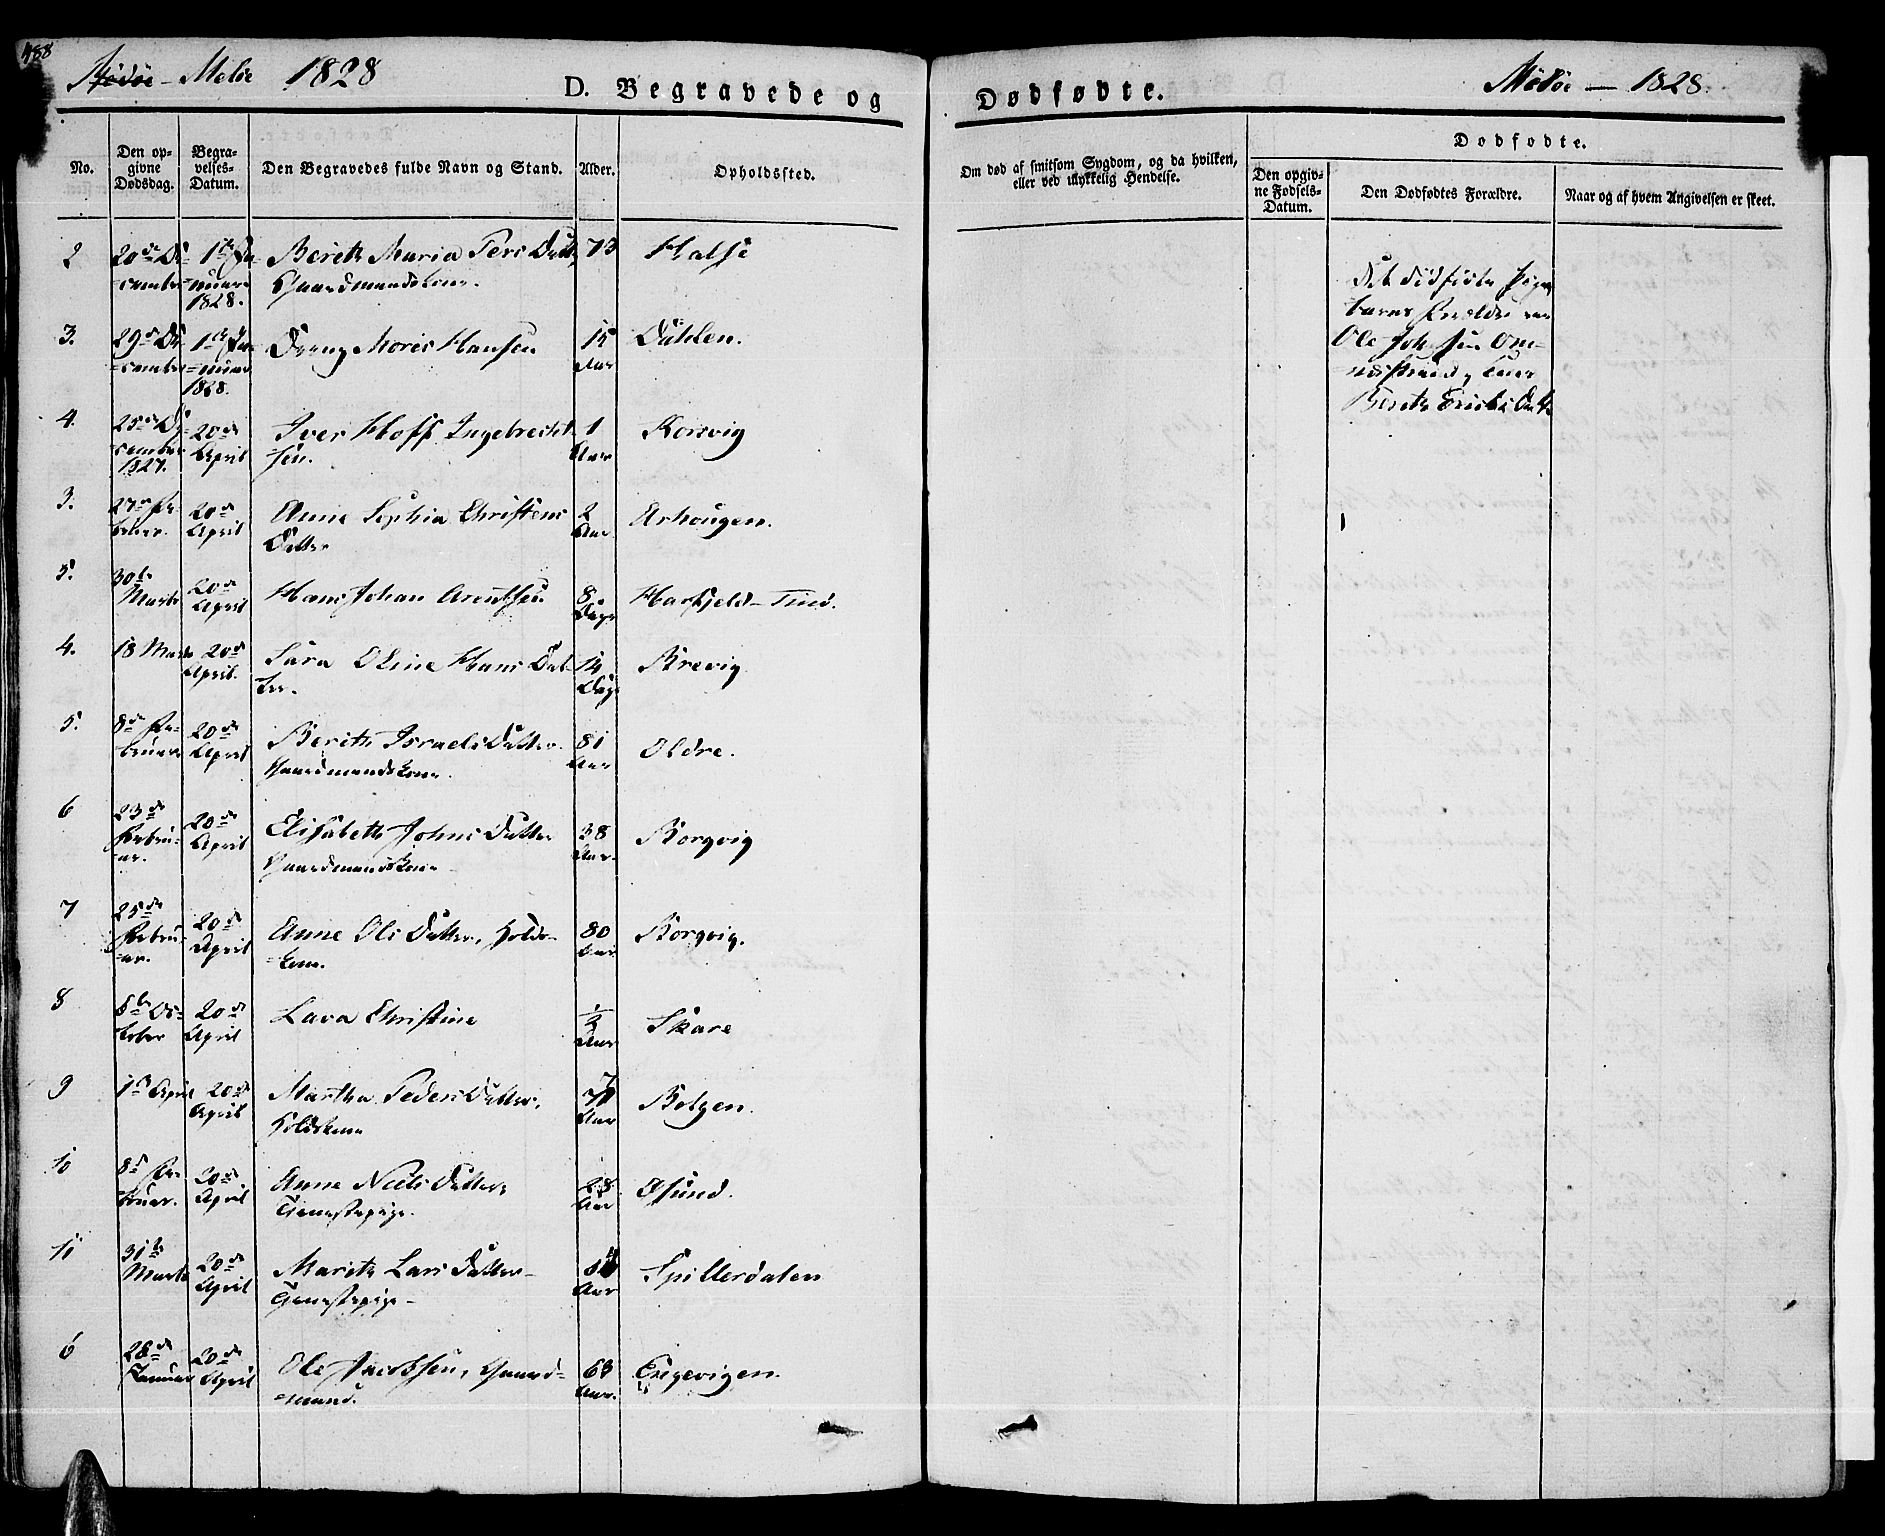 488
Rødøe - Meløe 1828
D. Begravede og
No.
Den opgivne Dødsdag.
Begravelses-Datum.
Den Begravedes fulde Navn og Stand.
Alder.
Opholdssted.
2 20de December 1te Januar 1828. Berith Maria Pers Datter 73 Halse
Gaardmandskone.
3. 29de December 1te Januar 1828. Dreng Moris Hansen 15 Aar Dahlen.
4. 25de December 1827. 20de April Iver Hoff Ingebrecht 1 Aar Korsvig
sen.
3. 27de Februar. 20de April Anne Sophia Christens 2 Aar Arhougen.
Datter
5. 30te Marts 20de April Hans Johan Arentsen 8 Dage Harfjeld-Tind.
4. 18 Marts 20de April. Sara Oline Hans Dat- 14 Dage Brevig
ter.
5. 8de Februar 20de April Berith Israels Datter. 81 Aar Oldre.
Gaardmandskone.
6 23de Februar. 20de April Elisabeth Johns Datter 38 Aar. Borgvig
Gaardmandskone
7 25de Februar. 20de April Anne Ols Datter, Holds- 80 Aar Borgvig.
kone.
8 5te October 20de April Lava Christine 1/2 Aar Skare
9 1te April 20de April Martha Peders Datter, Aar Bolgen.
Holdskone
10 8de Februar. 20de April Anne Niels Datter 28 Aar Øsund.
Tienestepige.
11 31te Marts 20de April Marith Lars Datter- Aar Spillerdalen
Tjenestepige-
6 28de Januar 20de April Ole Jacobsen, Gaard- 63 Aar. Engevigen
mand.
Dødfødte.
Meløe — 1828.
Om død af smitsom Sygdom, og da hvilken,
eller ved ulykkelig Hendelse.
Dødfødte.
Den opgivne Fødsels-Datum.
Den Dødfødtes Forældre.
Naar og af hvem Angivelsen er skeet.
Det dødfødte Pige
barns Forældre
Ole
Kone
Berith Erichs Datter